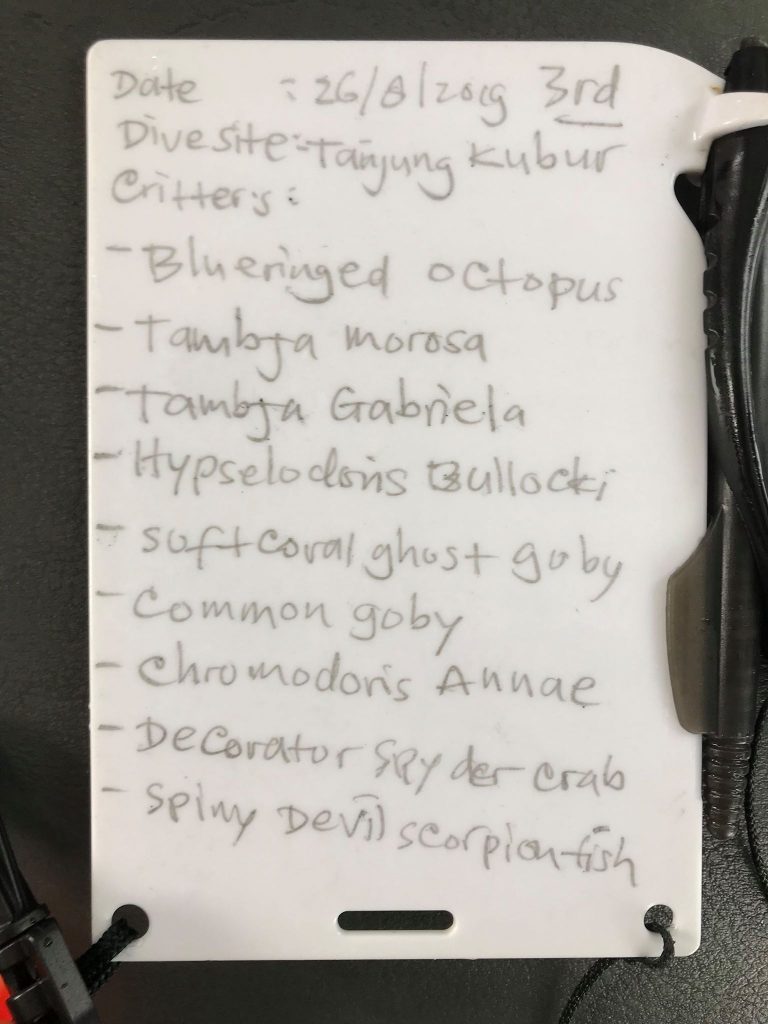 Date : 26/8/2019 3rd
Divesite:-Tanjung Kubur
Critters:
- Blueringed octopus
- Tambja morosa
- Tambja Gabriela
- Hypselodoris Bullocki
- softcoral ghost goby
- Common goby
- Chromodoris Annae
- Decorator spyder crab
- Spiny Devil scorpionfish